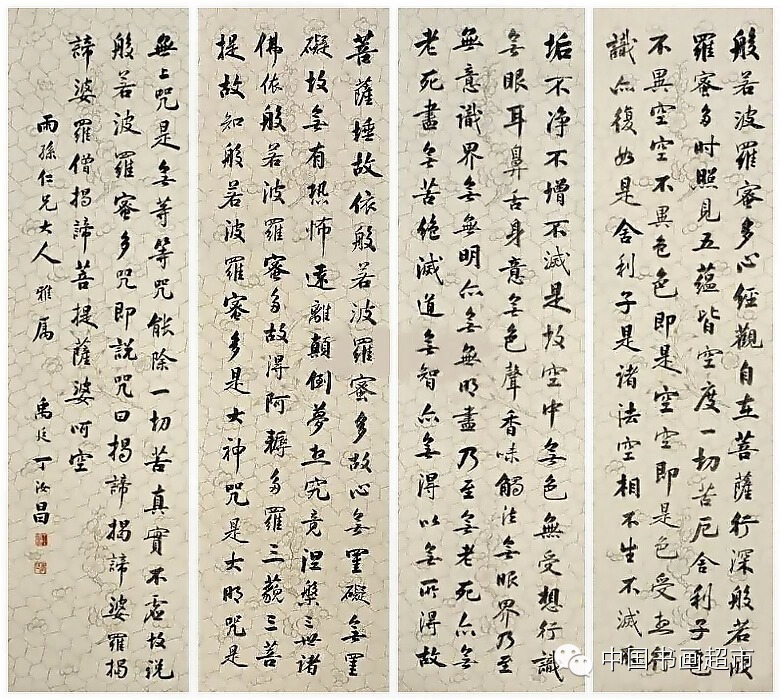 般若波羅蜜多心經觀自在菩薩行深般若波
羅蜜多時照見五蘊皆空度一切苦厄舍利子色
不異空空不異色色即是空空即是色受想行
識亦復如是舍利子是諸法空相不生不滅
垢不净不增不滅是故空中無色無受想行識
無眼耳鼻舌身意無色聲香味觸法無眼界乃至
無意識界無無明亦無無明盡乃至無老死亦無
老死盡無苦絕滅道無智亦無得以無所得故
菩薩埵故依般若波羅蜜多故心無罣礙無罣
礙故無有恐怖遠離顛倒夢想究竟涅槃三世諸
佛依般若波羅蜜多故得阿耨多羅三藐三菩
提故知般若波羅蜜多是大神咒是大明咒是
無上咒是無等等咒能除一切苦真實不虛故說
般若波羅蜜多咒即說咒曰揭諦揭諦婆羅揭
諦婆羅僧揭諦菩提薩婆呵空
雨孫仁兄大人 雅屬
禹廷丁汝昌
中国书画超市